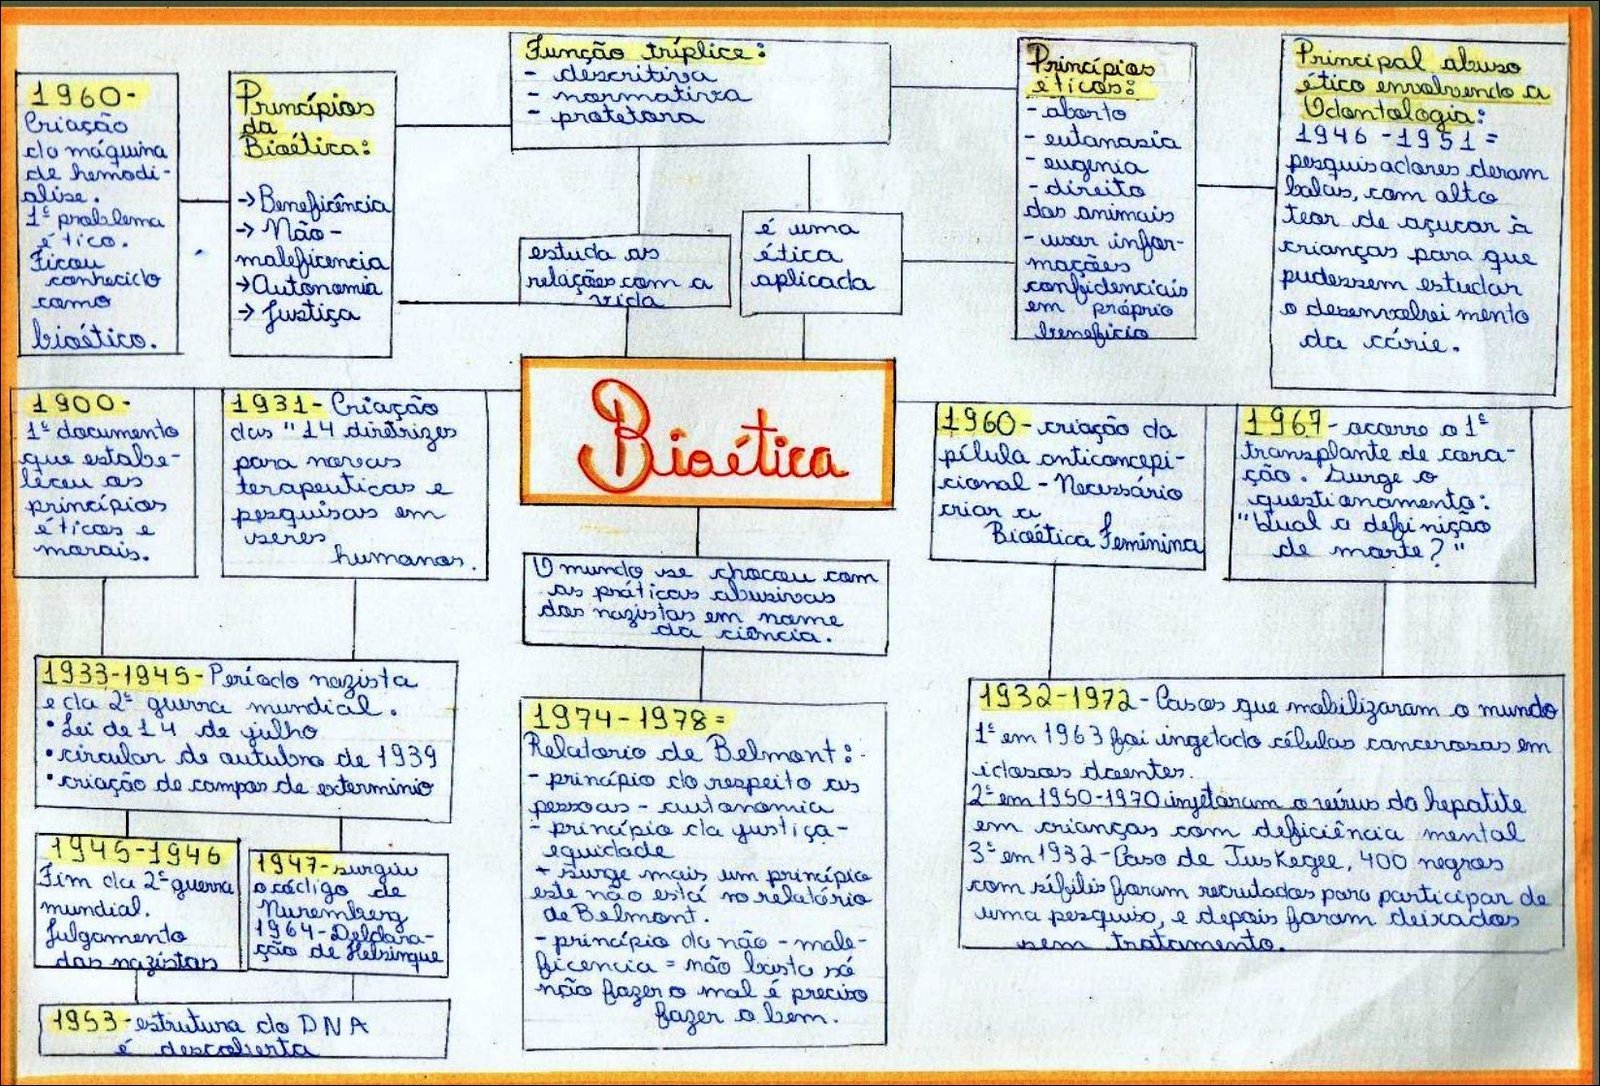 1960-
Criação
da máquina
de hemodi-
álise.
1º problema
ético.
Ficou
conhecido
como
bioético.
Princípios
da
Bioética:
→ Beneficência
→ Não-
maleficencia
→ Autonomia
→ Justiça
Função tríplice:
- descritiva
- normativa
- protetora
estuda as
relações com a
vida
é uma
ética
aplicada
Princípios
éticos:
- aborto
- eutanasia
- eugenia
- direito
dos animais
- usar infor-
mações
confidenciais
em próprio
beneficio
Principal abuso
ético envolvendo a
Odontologia:
1946 - 1951 =
pesquisadores deram
balas, com alto
teor de açucar à
crianças para que
pudessem estudar
o desenvolvimento
da cárie.
Bioética
1900-
1º documento
que estabe-
leceu os
princípios
éticos e
morais.
1931- Criação
das "14 diretrizes
para novas
terapeuticas e
pesquisas em
seres
humanos.
1960 - criação da
pílula anticoncepi-
cional - Necessário
criar a
Bioética Feminina
1967- ocorre o 1º
transplante de cora-
ção. Surge o
questionamento:
"Qual a definição
de morte?"
O mundo se chocou com
as práticas abusivas
dos nazistas em nome
da ciência.
1933-1945- Período nazista
e da 2ª guerra mundial.
• Lei de 14 de julho
• circular de outubro de 1939
• criação de campos de exterminio
1945-1946
Fim da 2ª guerra
mundial.
Julgamento
dos nazistas
1947-surgiu
o código de
Nuremberg
1964-Deldara-
ção de Helsinque
1953-estrutura do DNA
é descoberta
1974-1978=
Relatorio de Belmont:
- princípio do respeito as
pessoas - autonomia
- princípio da justiça -
equidade
+ surge mais um princípio
este não está no relatório
de Belmont.
- princípio da não - male-
ficencia = não basta só
não fazer o mal é preciso
fazer o bem.
1932-1972- Casos que mobilizaram o mundo
1º em 1963 foi ingetado células cancerosas em
idosos doentes.
2º em 1950-1970 injetaram o vírus da hepatite
em crianças com deficiência mental
3º em 1932- Caso de Tuskegee, 400 negros
com sífilis foram recrutados para participar de
uma pesquisa, e depois foram deixados
sem tratamento.